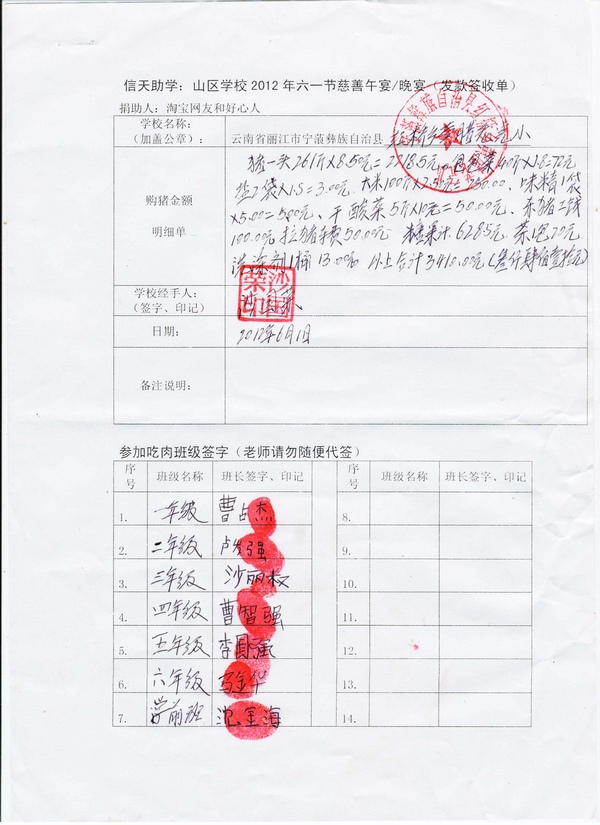 信天助学：山区学校2012年六一节慈善午宴/晚宴（发款签收单）
捐助人：淘宝网友和好心人
学校名称：
（加盖公章）：
云南省丽江市宁蒗彝族自治县 完小
购猪金额
明细单
猪一头261斤×8.50元=2218.5元、包包菜40斤×1.8=72元
盐2袋×1.5=3.00元、大米100斤×2.5元=250.00、味精1袋
×5.00=5.00元、干酸菜5斤×10元=50.00元、杀猪工钱
100.00元 拉猪车费50.00元 糖果计628.5元 茶1包20元
洗洁剂1桶13.00元 以上合计3410.00元（叁仟肆佰壹拾元）
学校经手人：
（签字、印记）
沙国荣
沙国荣印
日期：
2012年6月1日
备注说明：
参加吃肉班级签字（老师请勿随便代签）
序号 班级名称 班长签字、印记 序号 班级名称 班长签字、印记
1. 一年级 曹占杰 8.
2. 二年级 卢发强 9.
3. 三年级 沙丽权 10.
4. 四年级 曹智强 11.
5. 五年级 李国强 12.
6. 六年级 马金华 13.
7. 学前班 沈金海 14.